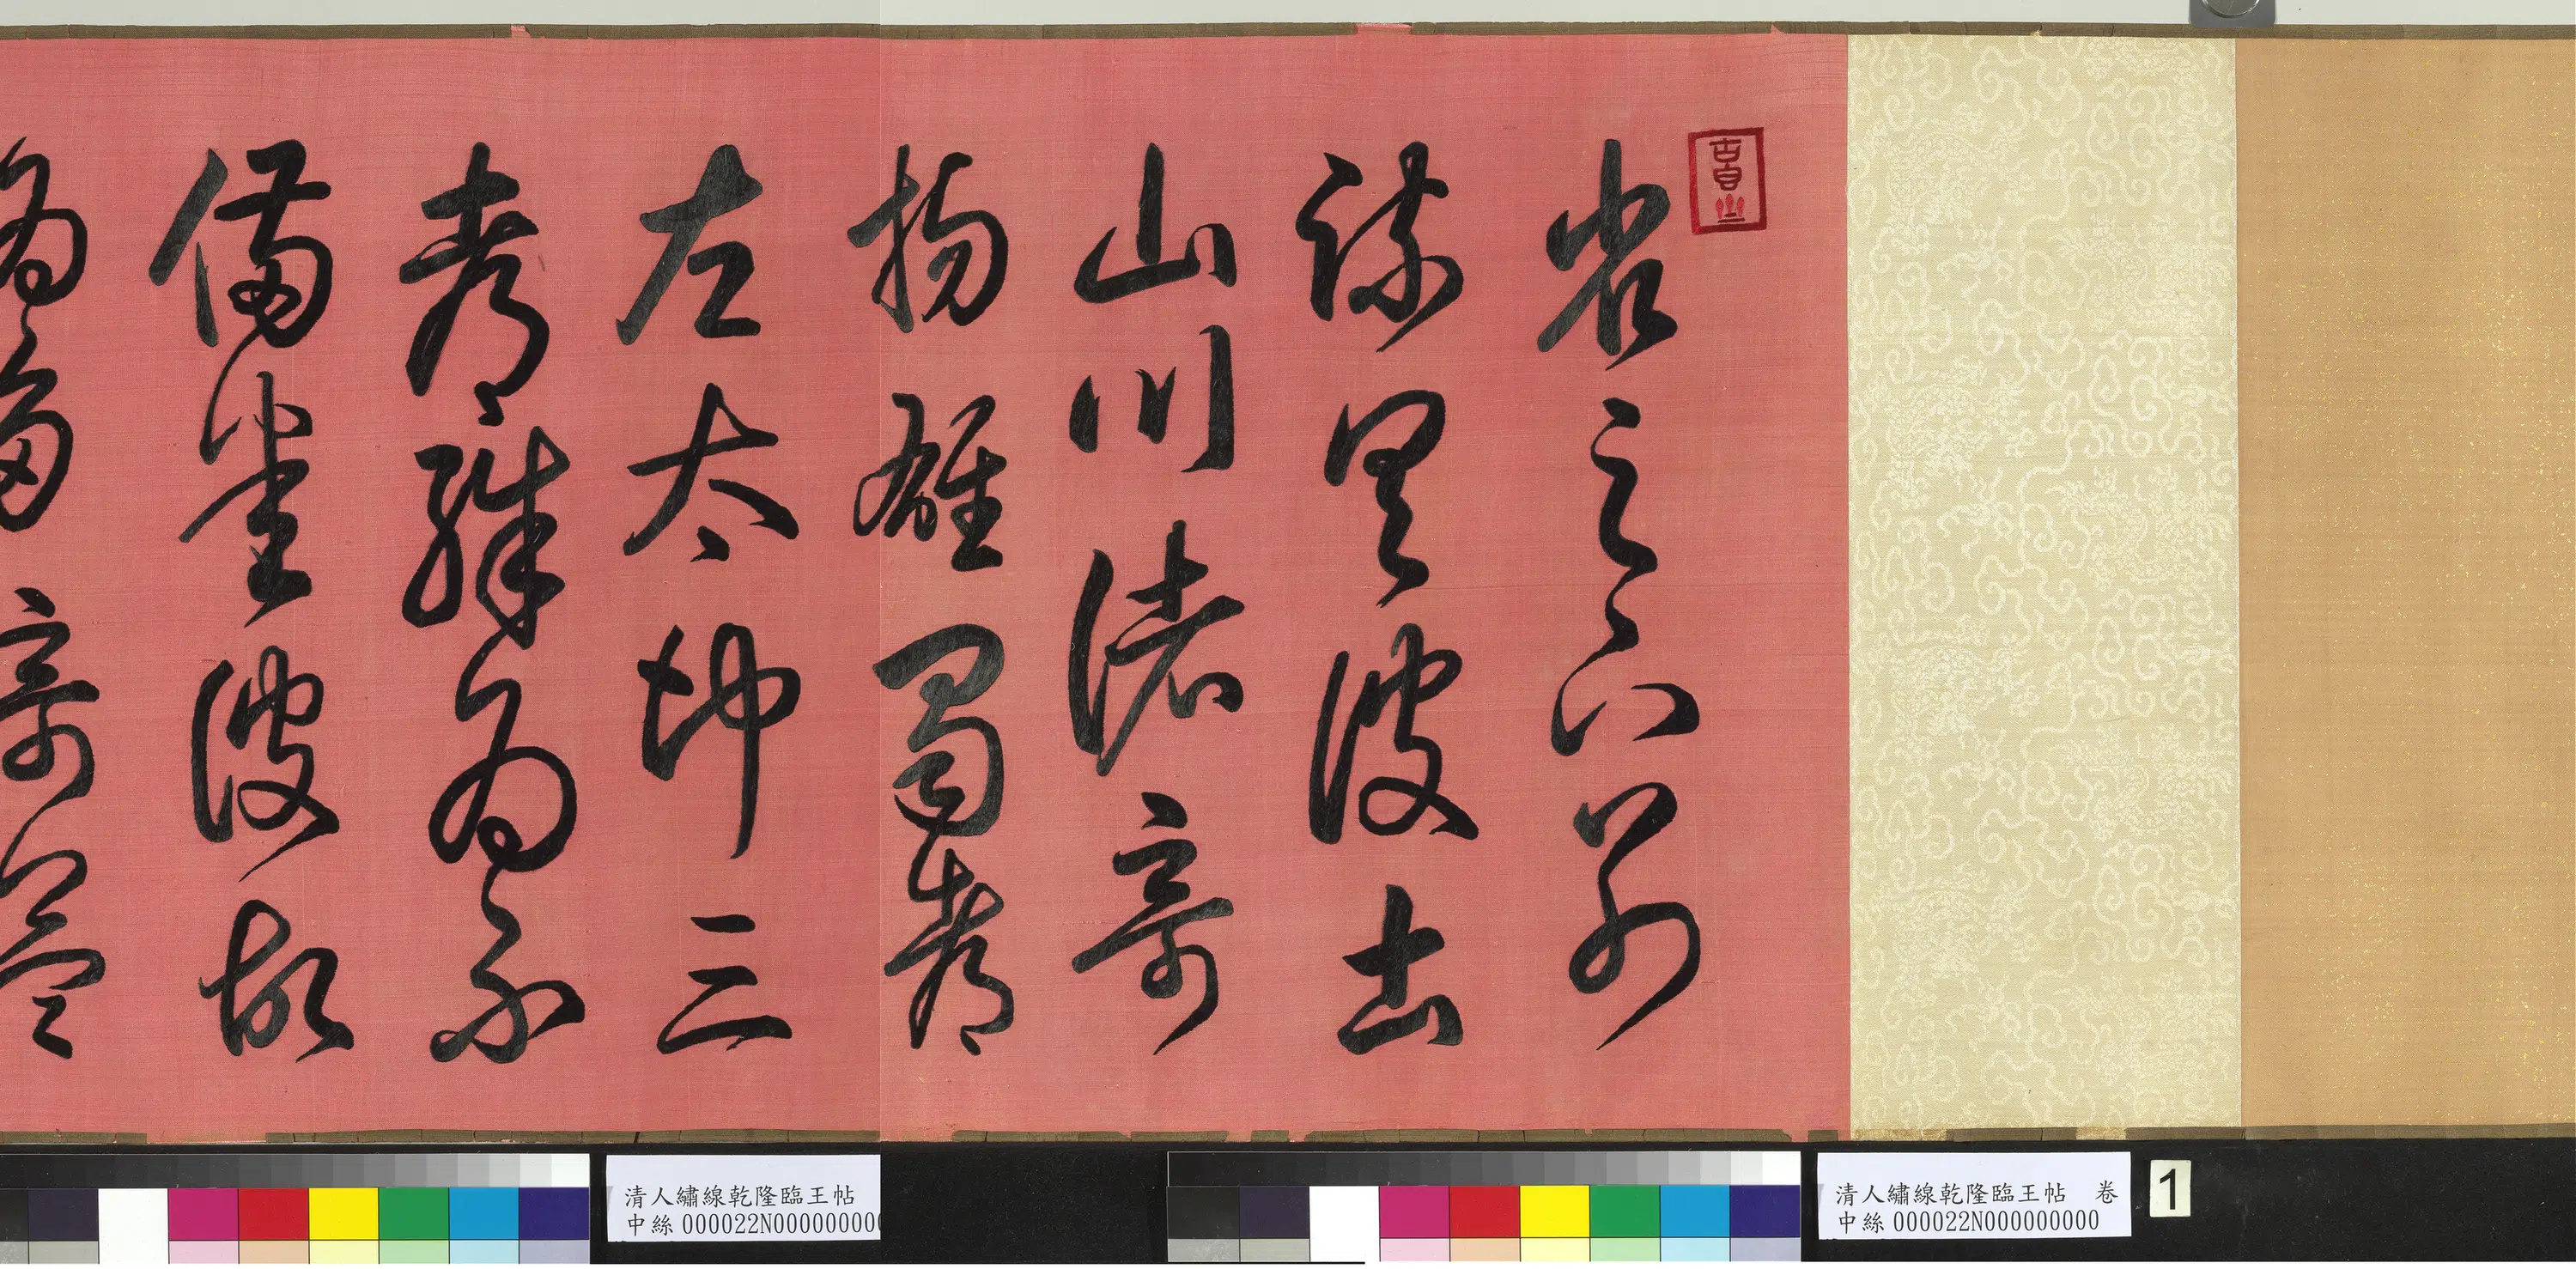 省足下別
疏具彼土
山川諸奇
揚雄蜀都
左太沖三
都殊為不
備悉彼故
為多奇益
清人繡線乾隆臨王帖 卷
中絲000022N000000000
1
清人繡線乾隆臨王帖
中絲000022N000000000